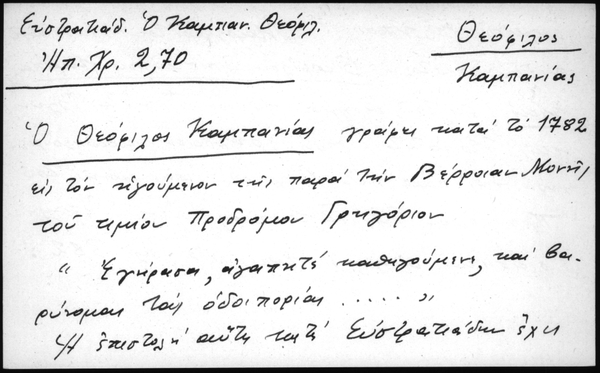 Εὐστρατιάδ. Ὁ Καμπαν. Θεόφιλ.
Ἠπ. Χρ. 2,70
Θεόφιλος
Καμπανίας
Ὁ Θεόφιλος Καμπανίας γράφει κατά τό 1782
εἰς τόν ἡγούμενον τῆς παρά τήν Βέρροιαν Μονῆς
τοῦ τιμίου Προδρόμου Γρηγόριον
" Ἐγήρασα, ἀγαπητέ καθηγούμενε, καί βα-
ρύνομαι τάς ὁδοιπορίας ..... "
Ἡ ἐπιστολή αὕτη κατά Εὐστρατιάδην ἔχει